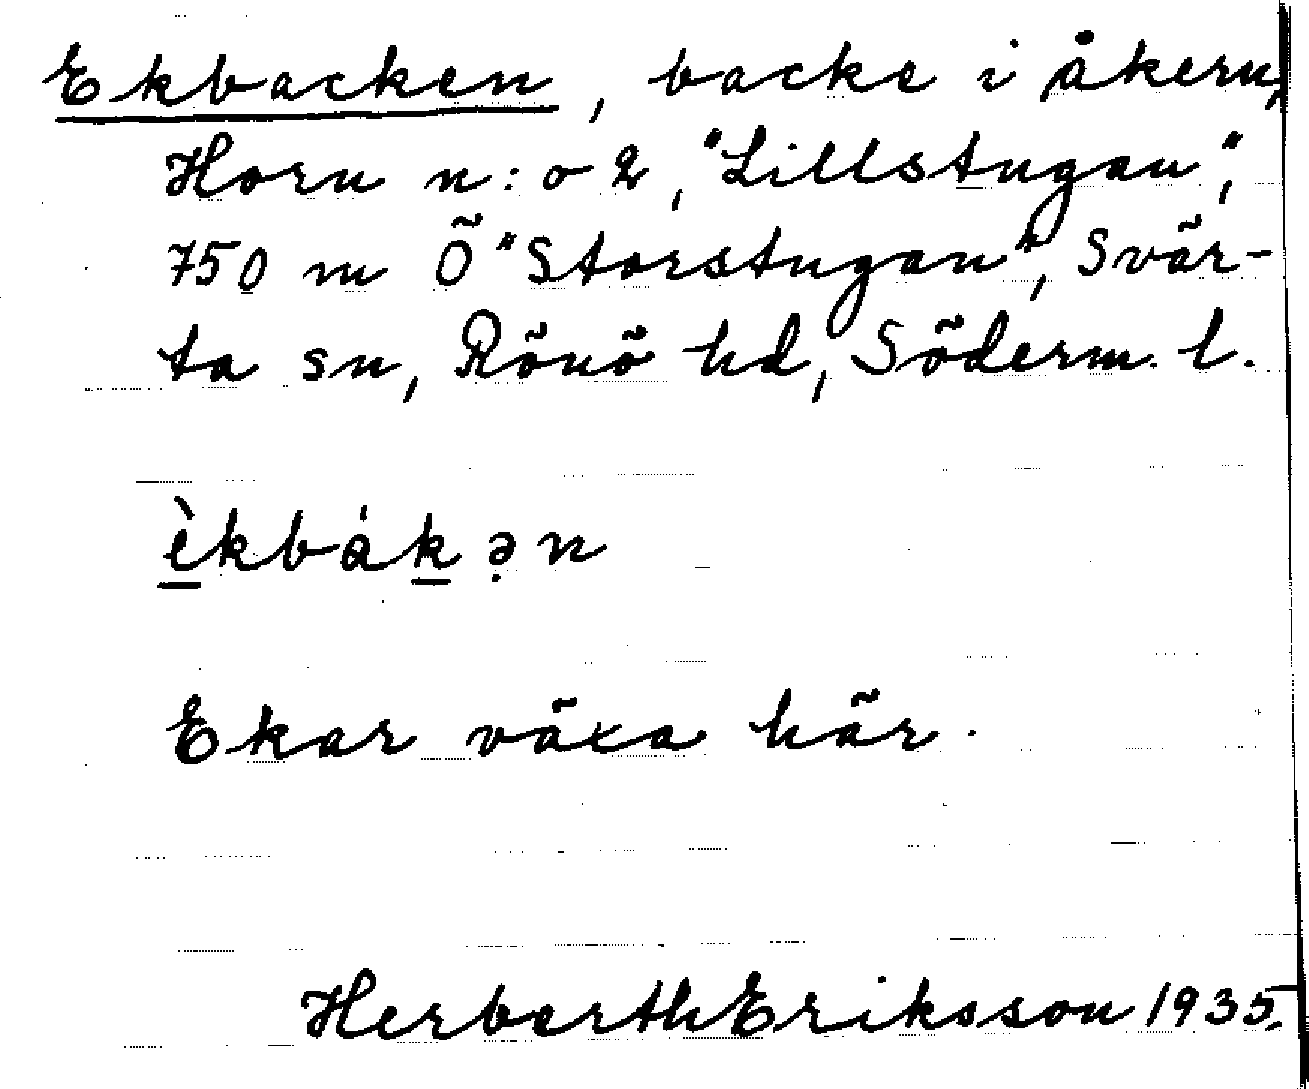 Ekbacken, backe i åkern,
Horn n:o 2, "Lillstugan",
750 m Ö "Storstugan", Svär-
ta sn, Rönö hd, Söderm. l.
èkbákə̣n
Ekar växa här.
Herberth Eriksson 1935.